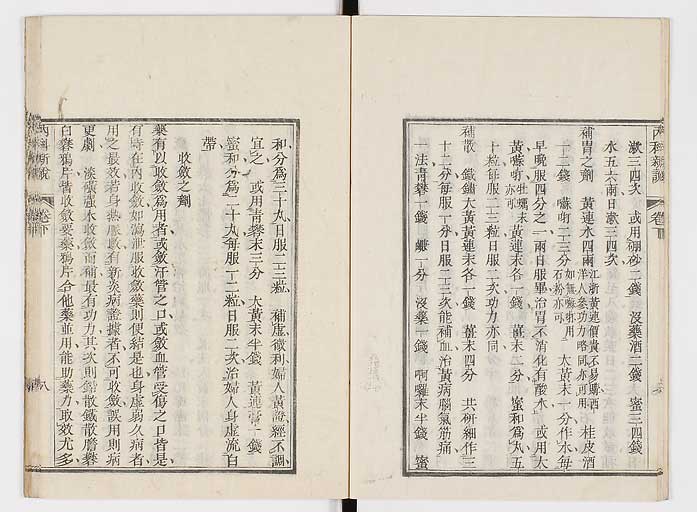 內科新說
卷下
漱三四次、或用硼砂二錢、沒藥酒二錢、蜜三四錢、
水五六兩日漱三四次、
補胃之劑　黃連水四兩江浙黃連價貴不易購洋人參功力略同亦可用　桂皮酒
十二錢　嗽唎二三分如無嗽唎用石粉亦可　大黃末一分作水每
早晚服四分之一兩日服畢治胃不消化有酸水、或用大
黃嗽唎牡蠣末亦可　黃連末各一錢　薑末二分　蜜和為丸五
十粒每服二三粒日服二次功力亦同、
補散　鐵鏽大黃黃連末各一錢　薑末四分　共研細作三
十二分每服一分日服二三次能補血治黃病腦氣筋痛
一法青礬一錢　 一分　沒藥一錢　 末半錢　蜜
和分為三十丸日服二三粒、補虛微利婦人黃證經不調
宜之、或用青礬末三分　大黃末半錢　黃連膏一錢
蜜和分為二十丸每服一二粒日服二次治婦人身虛流白
帶、
收斂之劑
藥有以收斂為用者、或斂汗管之口或斂血管受傷之口皆是、
有時在內收斂、如瀉泄服收斂藥則便結是也、身虛弱久病者、
用之最效若身熱脈數有新炎病證據者、不可收斂誤用則病
更劇、淡磺強水收斂而補最有功力其次則鉛散鐵散膽礬
白礬鴉片皆收斂要藥鴉片合他藥並用能助藥力取效尤多、
內科新說
卷下
八